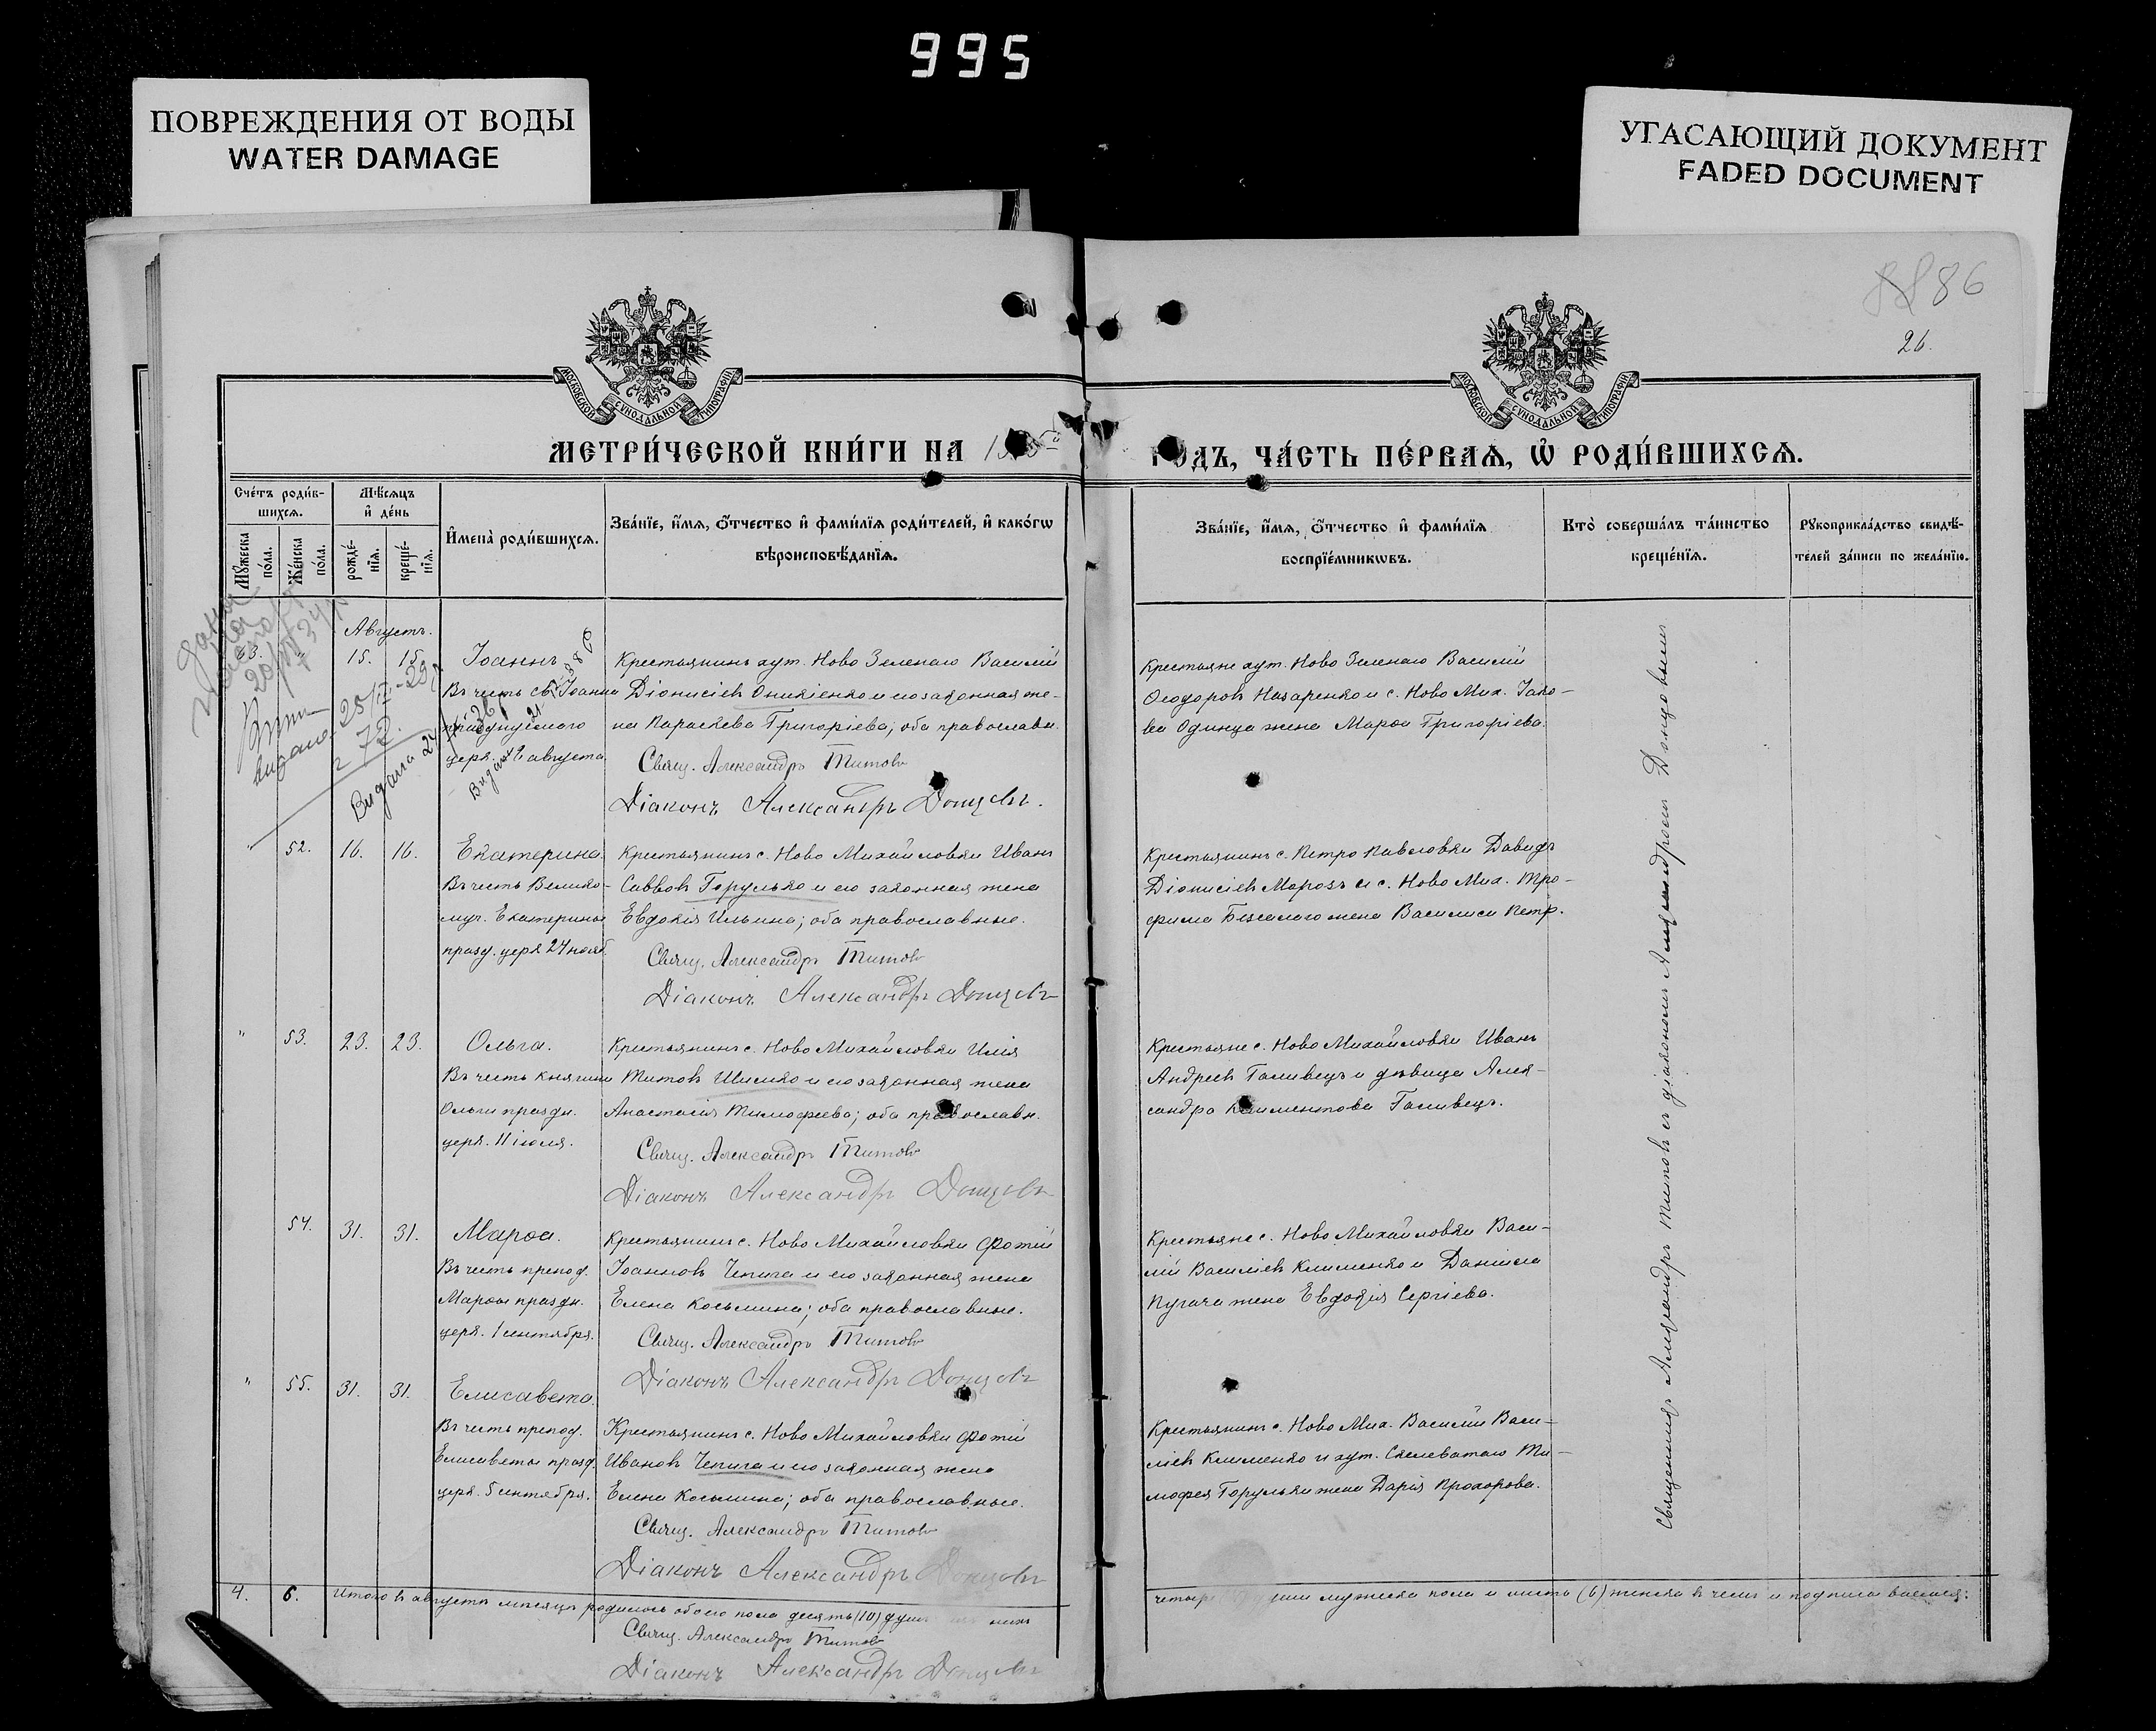 995
ПОВРЕЖДЕНИЯ ОТ ВОДЫ
WATER DAMAGE
УГАСАЮЩИЙ ДОКУМЕНТ
FADED DOCUMENT
86
26.
МОСКОВСКОЙ СѴНОДАЛЬНОЙ ТИПОГРАФІИ
МОСКОВСКОЙ СѴНОДАЛЬНОЙ ТИПОГРАФІИ
МЕТРИ́ЧЕСКОЙ КНИ́ГИ НА
ГОДЪ, ЧА́СТЬ ПЕ́РВАѦ, Ѽ РОДИ́ВШИХСѦ.
Сче́тъ роди́в-
шихсѧ.
Мꙋ́жеска по́ла.
Же́нска по́ла.
Мѣ́сѧцъ
и҆ де́нь
рожде́-
нїѧ.
креще́-
нїѧ.
И҆мена̀ роди́вшихсѧ.
Зва́нїе, и҆́мѧ, ѻ҆́тчество и҆ фами́лїѧ роди́телей, и҆ како́гѡ
вѣроисповѣ́данїѧ.
Зва́нїе, и҆́мѧ, ѻ҆́тчество и҆ фами́лїѧ
воспрїе́мникѡвъ.
Кто̀ соверша́лъ та́инство
креще́нїѧ.
Рꙋкоприкла́дство свидѣ́-
телей за́писи по жела́нїю.
Августъ.
63. " 15. 15. Іоаннъ
Въ честь св. Іоанна
церк. августа
Крестьянинъ хут. Ново Зеленаго Василій
Діонисіевъ Оникіенко и его законная же-
на Параскева Григоріева; оба православн.
Свящ. Александръ Титовъ
Діаконъ Александръ Донцовъ.
Крестьяне хут. Ново Зеленаго Василій
Ѳеодоровъ Назаренко и с. Ново Мих. Іако-
ва Одинца жена Марѳа Григоріева.
выдана 25/II - 29
72.
Видана
" 52. 16. 16. Екатерина.
Въ честь Велико-
муч. Екатерины
празд. церк 24 нояб.
Крестьянинъ с. Ново Михайловки Иванъ
Саввовъ Горулько и его законная жена
Евдокія Ильина; оба православные.
Свящ. Александръ Титовъ
Діаконъ Александръ Донцовъ
Крестьянинъ с. Петро Павловки Давидъ
Діонисіевъ Морозъ и с. Ново Мих. Тро-
фима жена Василиса Петр.
" 53. 23. 23. Ольга.
Въ честь княгини
Ольги праздн.
церк. 11 іюля.
Крестьянинъ с. Ново Михайловки Илія
Титовъ Шимко и его законная жена
Анастасія Тимофеева; оба православн.
Свящ. Александръ Титовъ
Діаконъ Александръ Донцовъ
Крестьяне с. Ново Михайловки Иванъ
Андреевъ Галивецъ и дѣвица Алек-
сандра Климентова Галивецъ.
54. 31. 31. Марѳа.
Въ честь препод.
Марѳы праздн.
церк. 1 сентября.
Крестьянинъ с. Ново Михайловки Фотій
Іоанновъ Чепига и его законная жена
Елена Косьмина; оба православные.
Свящ. Александръ Титовъ
Діаконъ Александръ Донцовъ
Крестьяне с. Ново Михайловки Васи-
лій Василіевъ Клименко и Даніила
Пугача жена Евдокія Сергіева.
" 55. 31. 31. Елисавета.
Въ честь препод.
Елисаветы празд.
церк. 5 сентября.
Крестьянинъ с. Ново Михайловки Фотій
Ивановъ Чепига и его законная жена
Елена Косьмина; оба православные.
Свящ. Александръ Титовъ
Діаконъ Александръ Донцовъ
Крестьянинъ с. Ново Мих. Василій Васи-
ліевъ Клименко и хут. Скелеватаго Ти-
мофея Горульки жена Дарія Прохорова.
Священникъ Александръ Титовъ съ діакономъ Александромъ Донцовымъ
4. 6. Итого въ августѣ мѣсяцѣ родилось обоего пола десять (10) душъ нихъ
души мужеска пола и шесть (6) женска въ чемъ и подписа
Свящ. Александръ Титовъ
Діаконъ Александръ Донцовъ